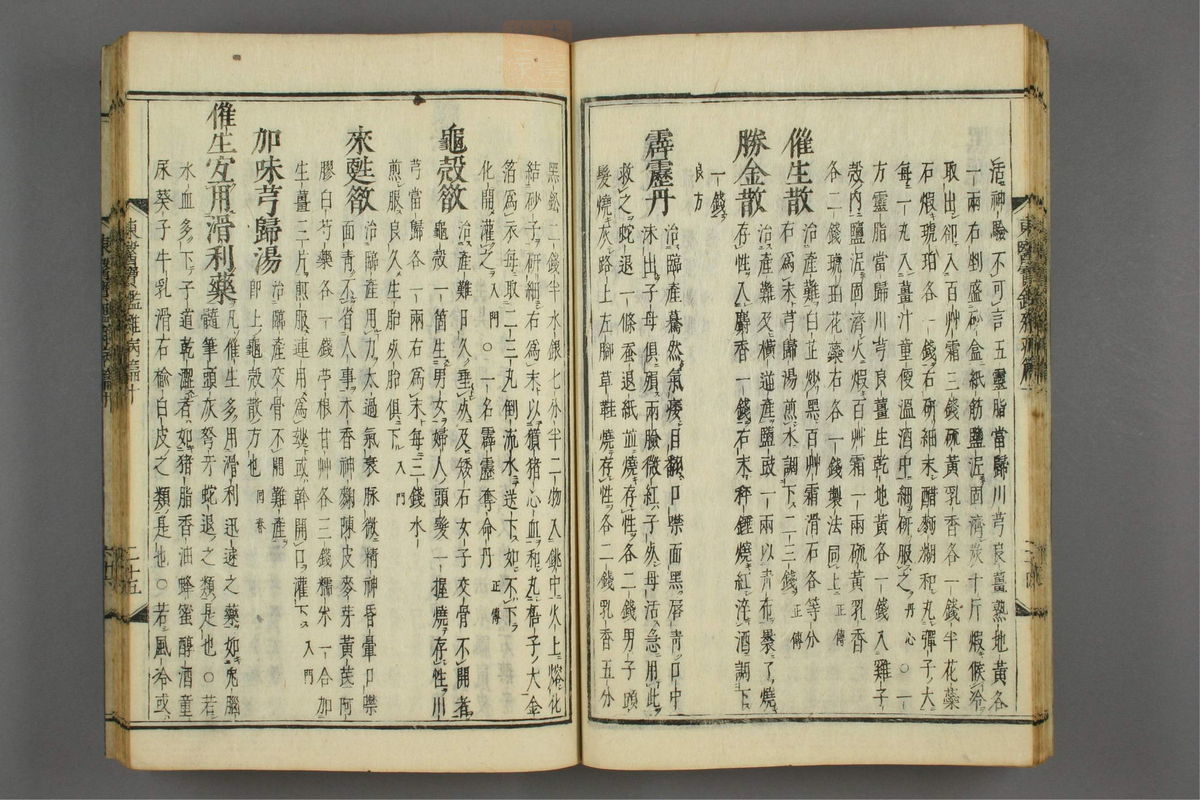 活神驗不可言五靈脂當歸川芎良薑熟地黃各
一兩右剉盛砂盒紙筋鹽泥固濟炭十斤煆候冷
取出却入百艸霜三錢硫黃乳香各一錢半花藥
石煆琥珀各一錢右硏細末醋麪糊和丸彈子大
每一丸入薑汁童便溫酒中細硏服之丹心○一
方靈脂當歸川芎良薑生乾地黃各一錢入雞子
殼內鹽泥固濟火煆百艸霜一兩硫黃乳香
各二錢琥珀花藥石各一錢製法同上正傳
催生散 治產難白芷炒黑百艸霜滑石各等分
右爲末芎歸湯煎水調下二三錢正傳
勝金散 治產難及橫逆產鹽豉一兩以靑布裹了燒
存性入麝香一錢右末秤錘燒紅淬酒調下
一錢
良方
霹靂丹 治臨產驀然氣痿目翻口噤面黑唇靑口中
沫出子母俱殞兩臉微紅子死母活急用此
救之蛇退一條蚕退紙並燒存性各二錢男子頭
髮燒灰路上左脚草鞋燒存性各二錢乳香五分
黑鉛二錢半水銀七分半二物入銚中火上熔化
結砂子硏細右爲末以豶猪心血和丸梧子大金
箔爲衣每取二三丸倒流水送下如不下
化開灌之入門○一名霹靂奪命丹正傳
龜殼散 治產難日久垂死及矮石女子交骨不開者
龜殼一箇生男女婦人頭髮一握燒存性川
芎當歸各一兩右爲末每三錢水
煎服良久生胎死胎俱下入門
來甦散 治臨產用力太過氣衰脉微精神昏暈口噤
面靑不省人事木香神麴陳皮麥芽黃芪阿
膠白芍藥各一錢苧根甘艸各三錢糯米一合加
生薑三片煎服連用爲玅或斡開口灌下入門
加味芎歸湯 治臨產交骨不開難產
卽上龜殼散方也同春
催生宜用滑利藥 凡催生多用滑利迅速之藥如兎腦
髓筆頭灰弩牙蛇退之類是也○若
水血多下子道乾澁者如猪脂香油蜂蜜醇酒童
尿葵子牛乳滑石楡白皮之類是也○若風冷或